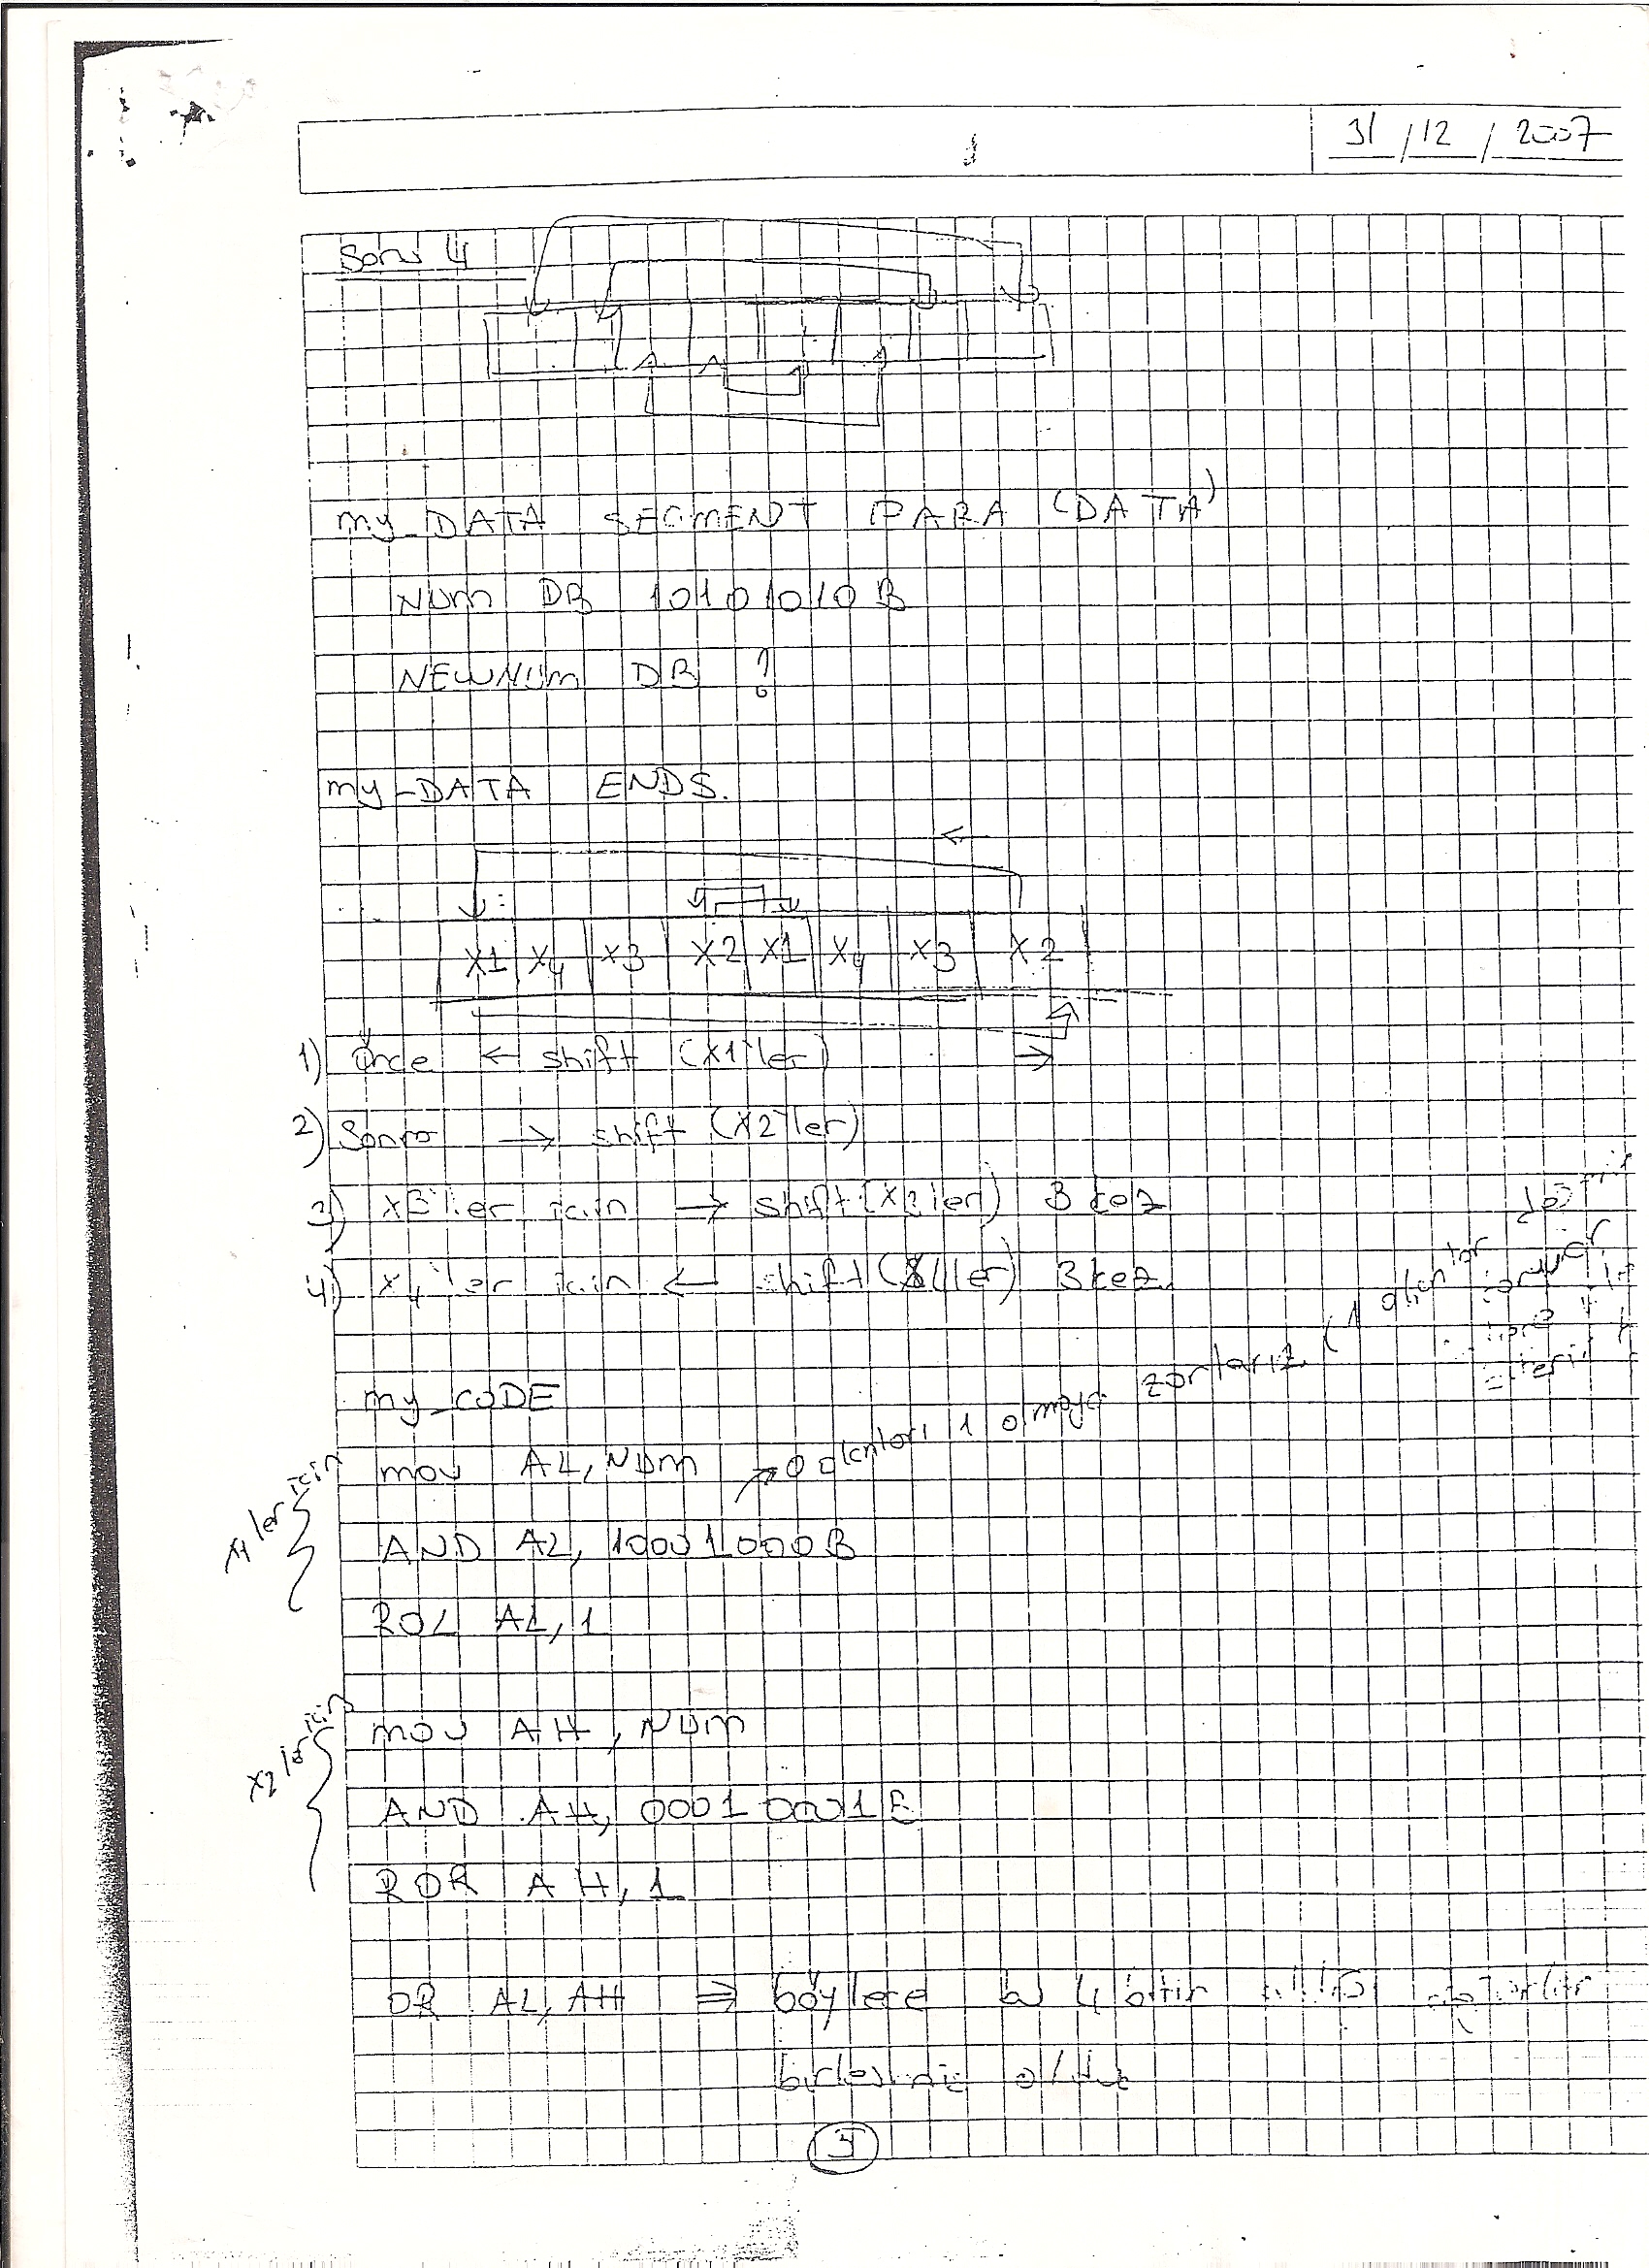 31 / 12 / 2007
Soru 4
my_DATA SEGMENT PARA (DATA)
NUM DB 10101010B
NEWNUM DB ?
my_DATA ENDS.
X1 X4 X3 X2 X1 X4 X3 X2
1) Önce ← shift (X1'ler)
2) Sonra → shift (X2'ler)
3) X3'ler için → shift (X3'ler) 3 kez
4) X4'ler için ← shift (X4'ler) 3 kez
my_CODE
X1'ler için
mov AL, NUM → 0 olanları 1 olmaya zorlarız (1 olanlar
AND AL, 10001000B
ROL AL, 1
X2'ler için
mov AH, NUM
AND AH, 00010001B
ROR AH, 1
OR AL, AH ⇒ böylece bu 4 bitin
birleştirmiş olduk
3